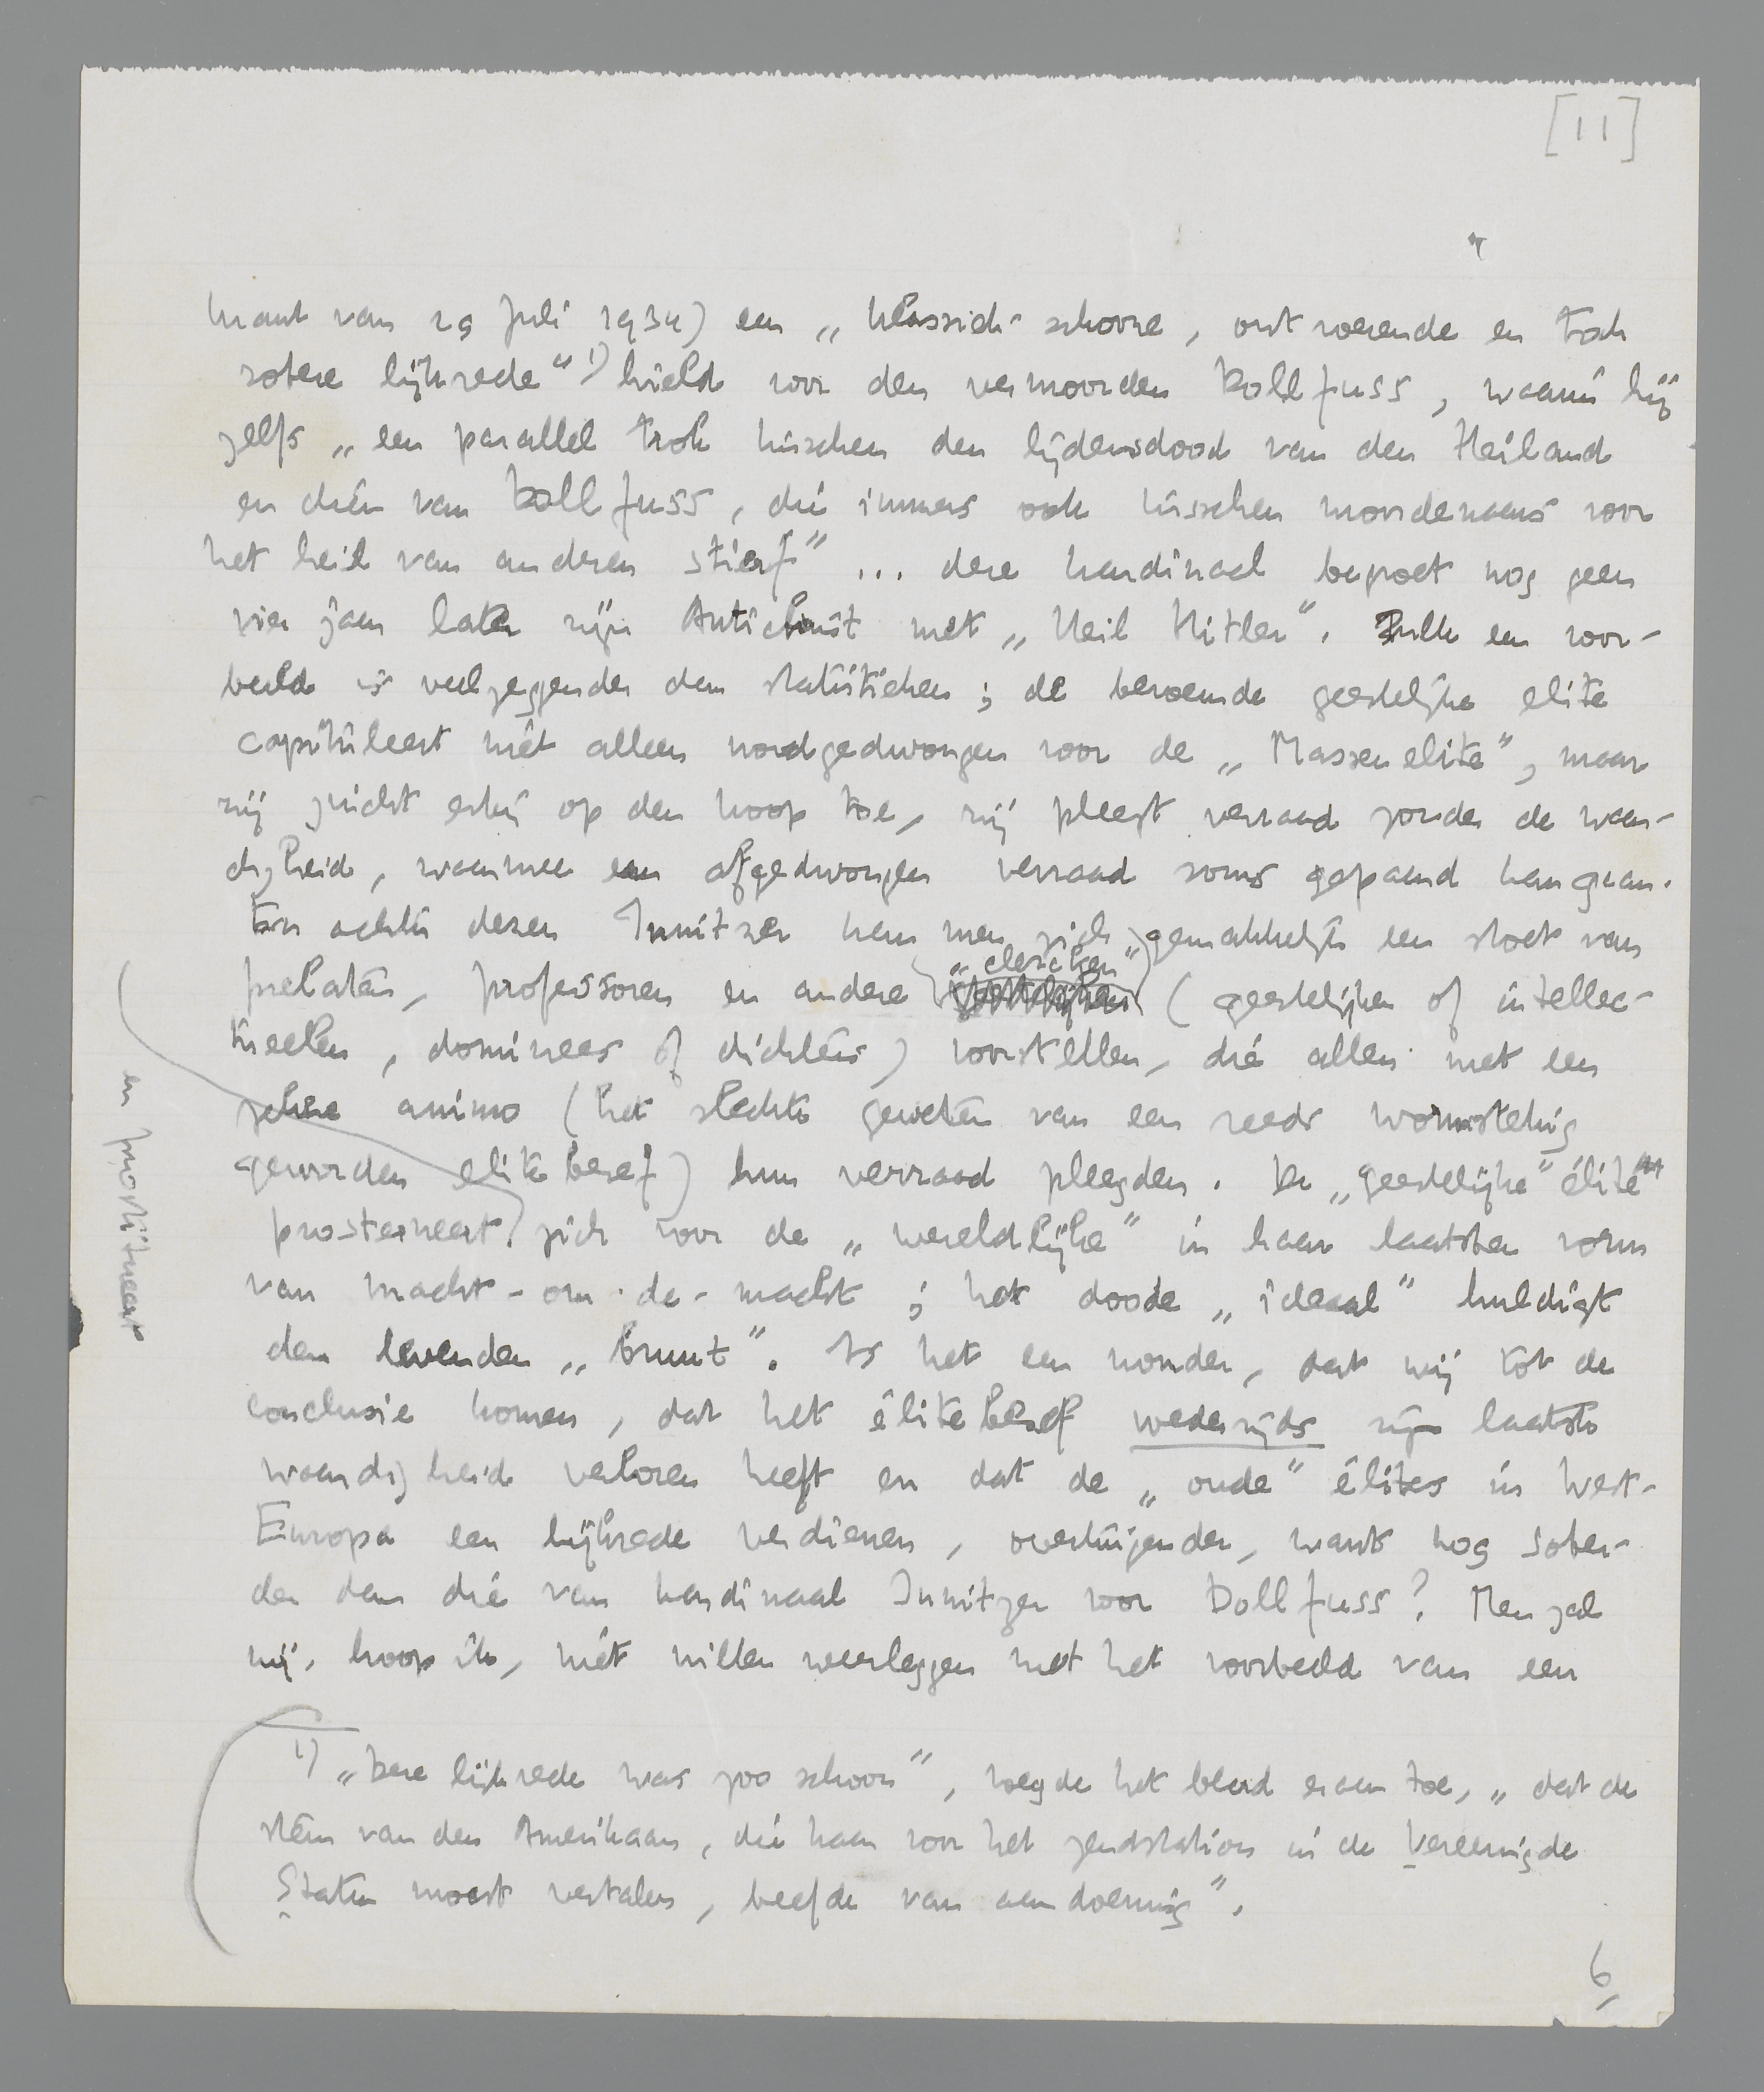 [11]
krant van 29 Juli 1934) een „klassiek-schoone, ontroerende en toch
sobere lijkrede” 1) hield voor den vermoorden Dollfuss, waarin hij
zelfs „een parallel trok tusschen den lijdensdood van den Heiland
en dien van Dollfuss, die immers ook tusschen moordenaars voor
het heil van anderen stierf” ... deze kardinaal begroet nog geen
vier jaar later zijn Antichrist met „Heil Hitler”. Zulk een voor-
beeld is veelzeggender dan statistieken; de beroemde geestelijke elite
capituleert niet alleen noodgedwongen voor de „Massenelite”, maar
zij juicht erbij op den koop toe, zij pleegt verraad zonder de waar-
digheid, waarmee een afgedwongen verraad soms gepaard kan gaan.
En achter dezen Innitzer kan men zich gemakkelijk een stoet van
prelaten, professoren en andere „clercken” (geestelijken of intellec-
tueelen, dominees of dichters) voorstellen, die allen met een
zekere animo (het slechte geweten van een reeds wormstekig
geworden elitebesef) hun verraad pleegden. De „geestelijke” élite
prosterneert zich voor de „wereldlijke” in haar laatsten vorm
en prostitueert
van macht-om-de-macht; het doode „ideaal” huldigt
den levenden „bruut”. Is het een wonder, dat wij tot de
conclusie komen, dat het élitebesef wederzijds zijn laatste
waardigheid verloren heeft en dat de „oude” élites in West-
Europa een lijkrede verdienen, overtuigender, want nog sober-
der dan die van kardinaal Innitzer voor Dollfuss? Men zal
mij, hoop ik, niet willen weerleggen met het voorbeeld van een
1) „Deze lijkrede was zoo schoon”, voegde het blad eraan toe, „dat de
stem van den Amerikaan, die haar voor het zendstation in de Vereenigde
Staten moest vertalen, beefde van aandoening”.
6